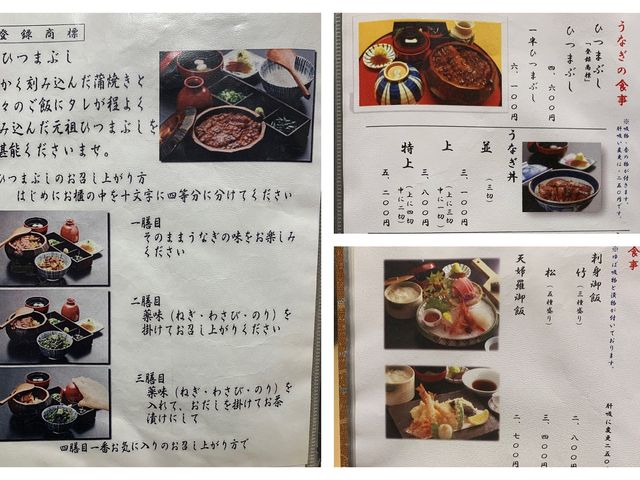 登録商標
ひつまぶし
かく刻み込んだ蒲焼きと
々のご飯にタレが程よく
み込んだ元祖ひつまぶしを
甚能くださいませ。
ひつまぶしのお召し上がり方
はじめにお櫃の中を十文字に四等分に分けてください
一膳目
そのままうなぎの味をお楽しみ
ください
二膳目
薬味(ねぎ・わさび・のり)を
掛けてお召し上がりください
三膳目
薬味(ねぎ・わさび・のり)を
入れて、おだしを掛けてお茶
漬けにして
四膳目一番お気に入りのお召し上がり方で
うなぎの食事
※吸物・香の物が付きます。
肝吸い変更は+二五〇円です。
ひつまぶし
「登録商標」
ひつまぶし 四、六〇〇円
一半ひつまぶし 六、一〇〇円
うなぎ丼
並 (三切) 三、一〇〇円
上 (上に三切 中に一切) 三、八〇〇円
特上 (上に四切 中に二切) 五、二〇〇円
食事
※ゆば吸物と漬物が付いております。
肝吸に変更二五〇
刺身御飯
竹 (三種盛り) 二、八〇〇円
松 (五種盛り) 三、四〇〇円
天婦羅御飯 二、七〇〇円